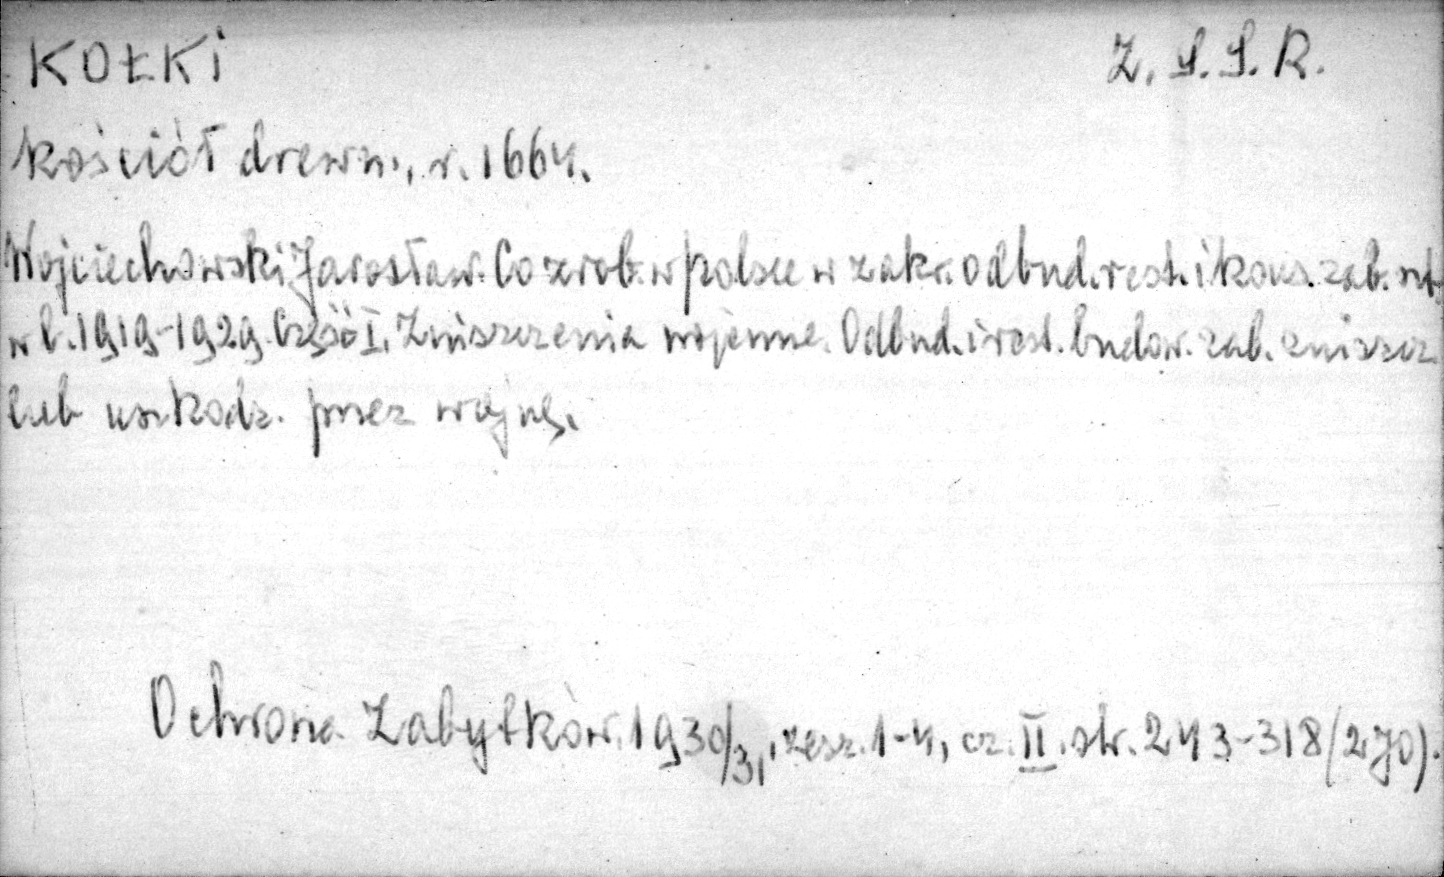 KOŁKI Z.S.S.R.
kościół drewn., r. 1664.
Wojciechowski Jarosław. Co zrob. w Polsce w zakr. odbud. rest. i kons. zab. szt.
w l. 1919-1929. Część I. Zniszczenia wojenne. Odbud. i rest. budow. zab. zniszcz
lub uszkodz. przez wojnę.
Ochrona Zabytków. 1930/31, zesz. 1-4, cz. II. str. 243-318 (270).